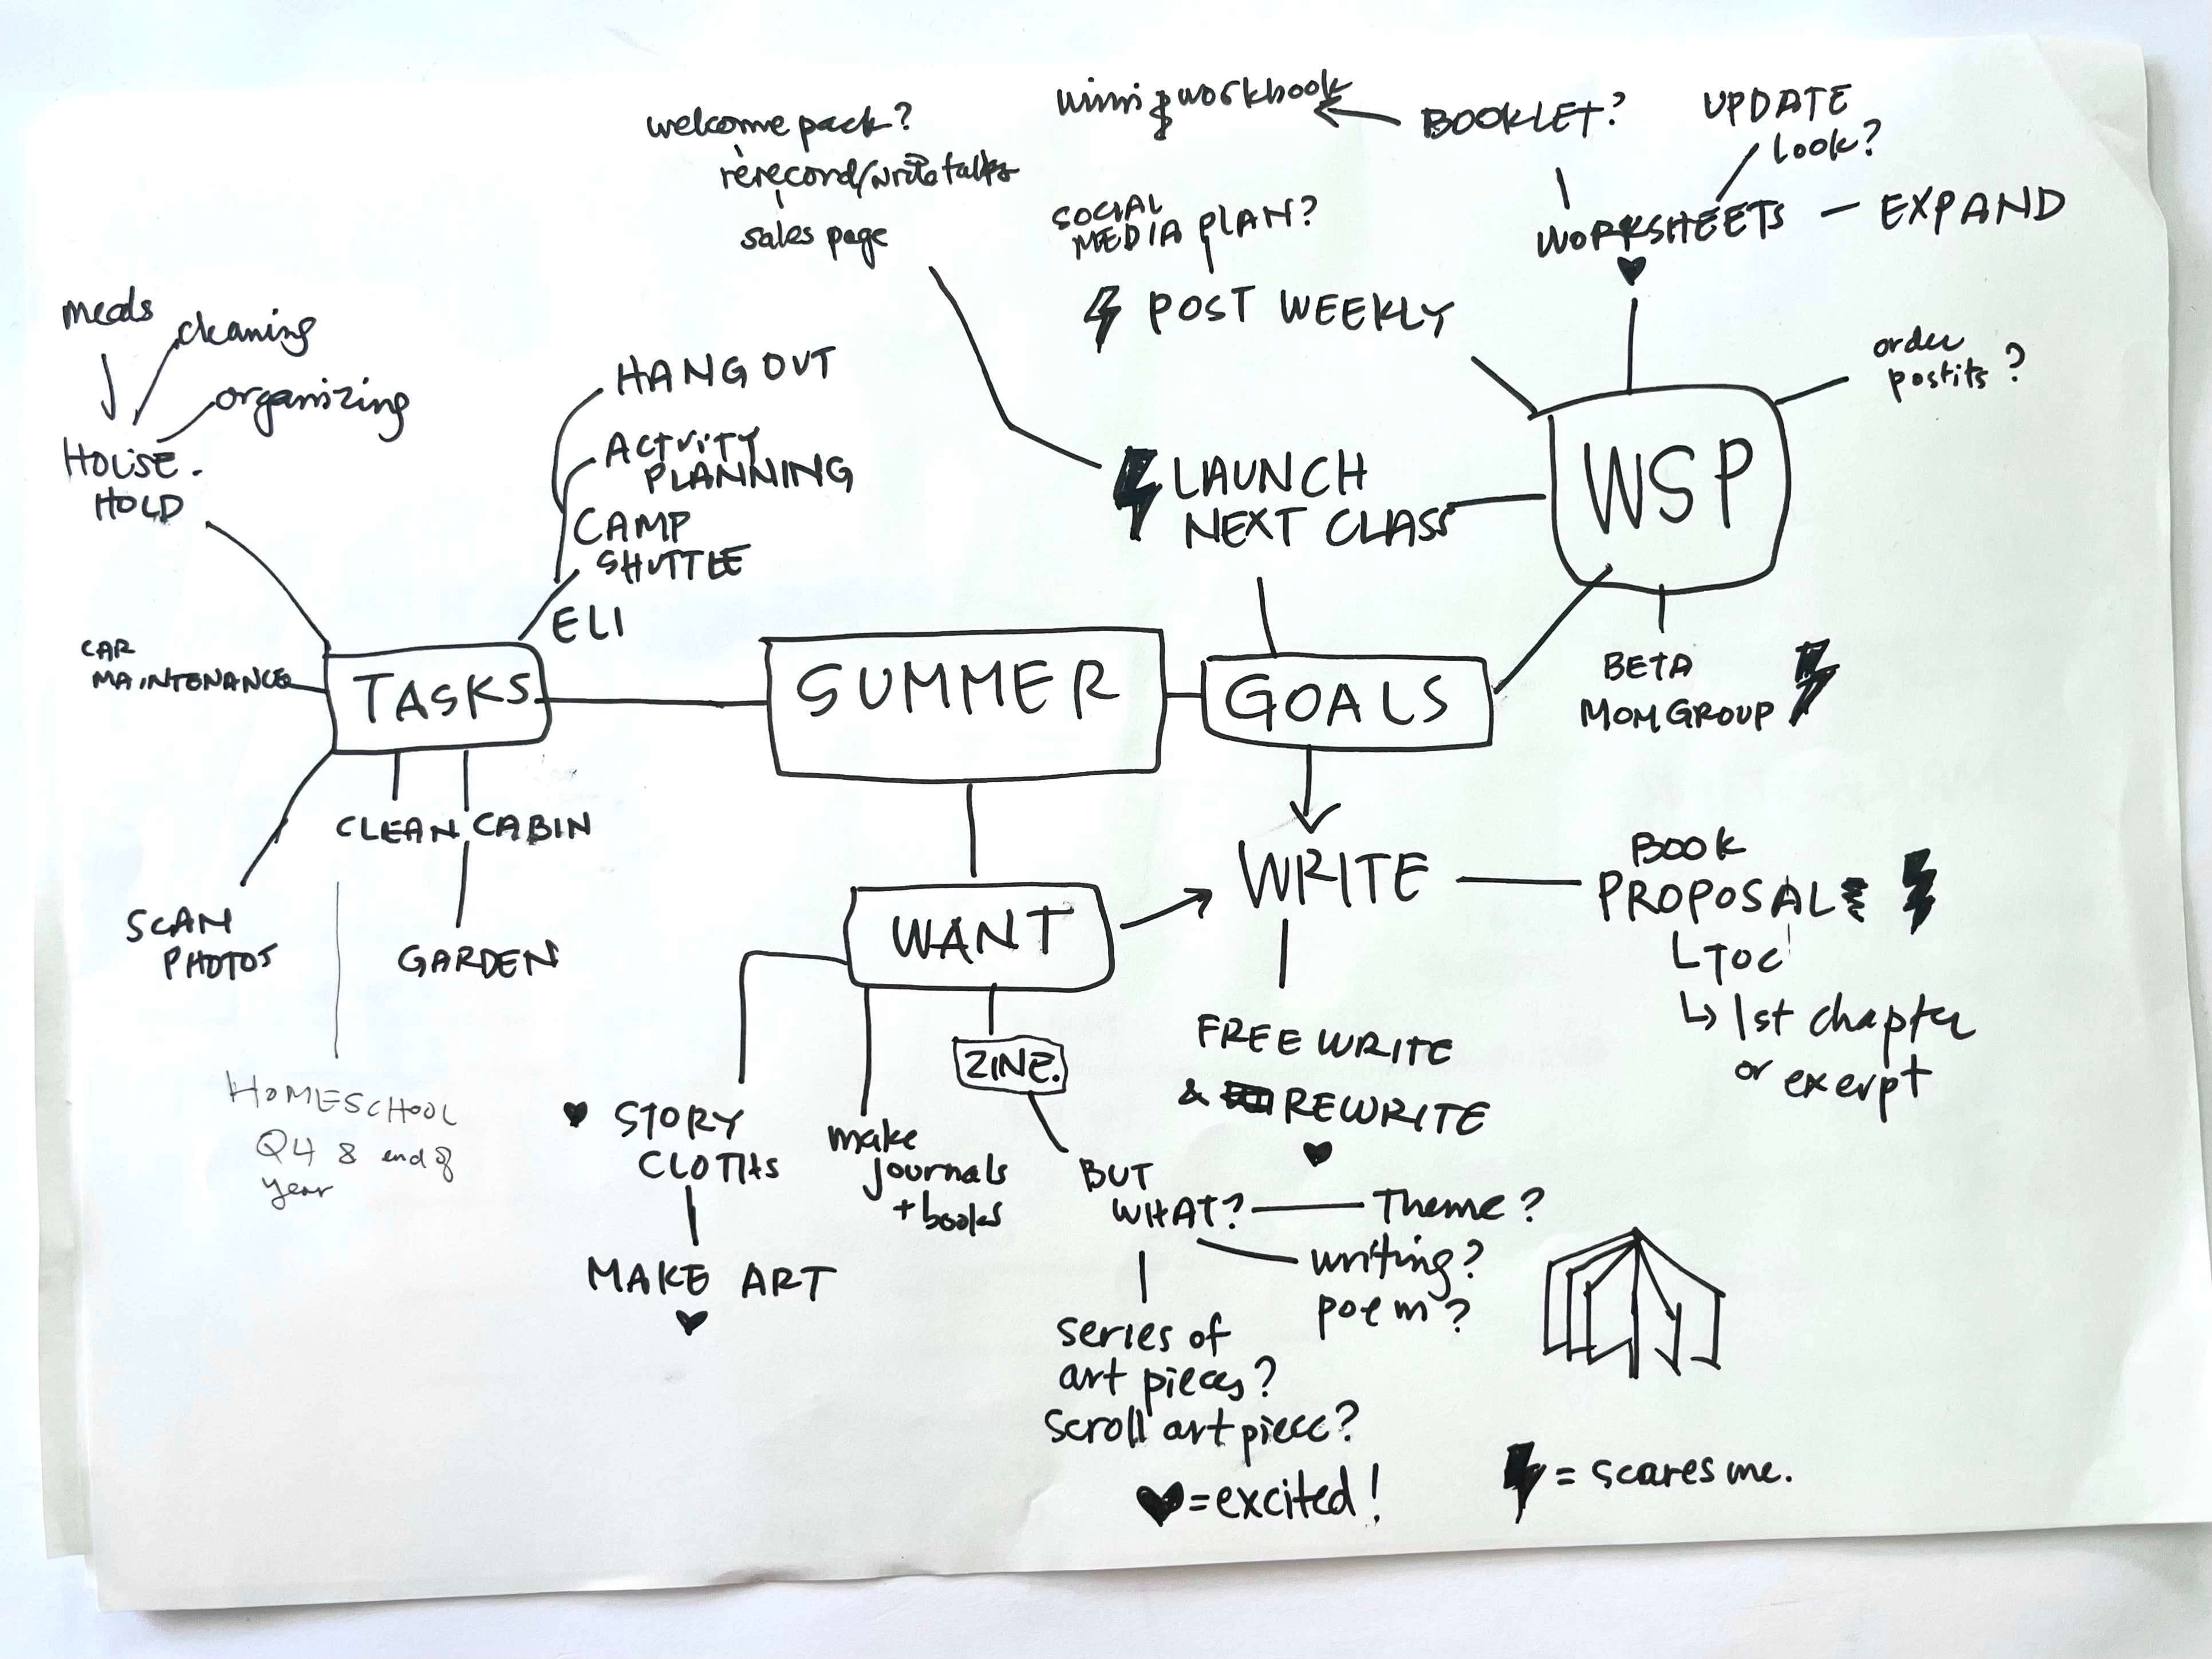 welcome pack?
rerecord/write talks
sales page
workbook
BOOKLET?
UPDATE
look?
SOCIAL
MEDIA PLAN?
POST WEEKLY
WORKSHEETS - EXPAND
order
postits?
meals
cleaning
organizing
HOUSE-
HOLD
HANG OUT
ACTVITY
PLANNING
CAMP
SHUTTLE
ELI
LAUNCH
NEXT CLASS
WSP
CAR
MAINTENANCE
TASKS
SUMMER
GOALS
BETA
MOM GROUP
CLEAN CABIN
SCAN
PHOTOS
GARDEN
HOMESCHOOL
Q4 & end of
year
WANT
WRITE
BOOK
PROPOSAL
TOC
1st chapter
or exerpt
FREE WRITE
& REWRITE
STORY
CLOTHS
MAKE ART
make
journals
+ books
ZINE.
BUT
WHAT?
Theme?
writing?
poem?
series of
art pieces?
scroll art piece?
♥ = excited!
⚡ = scares me.